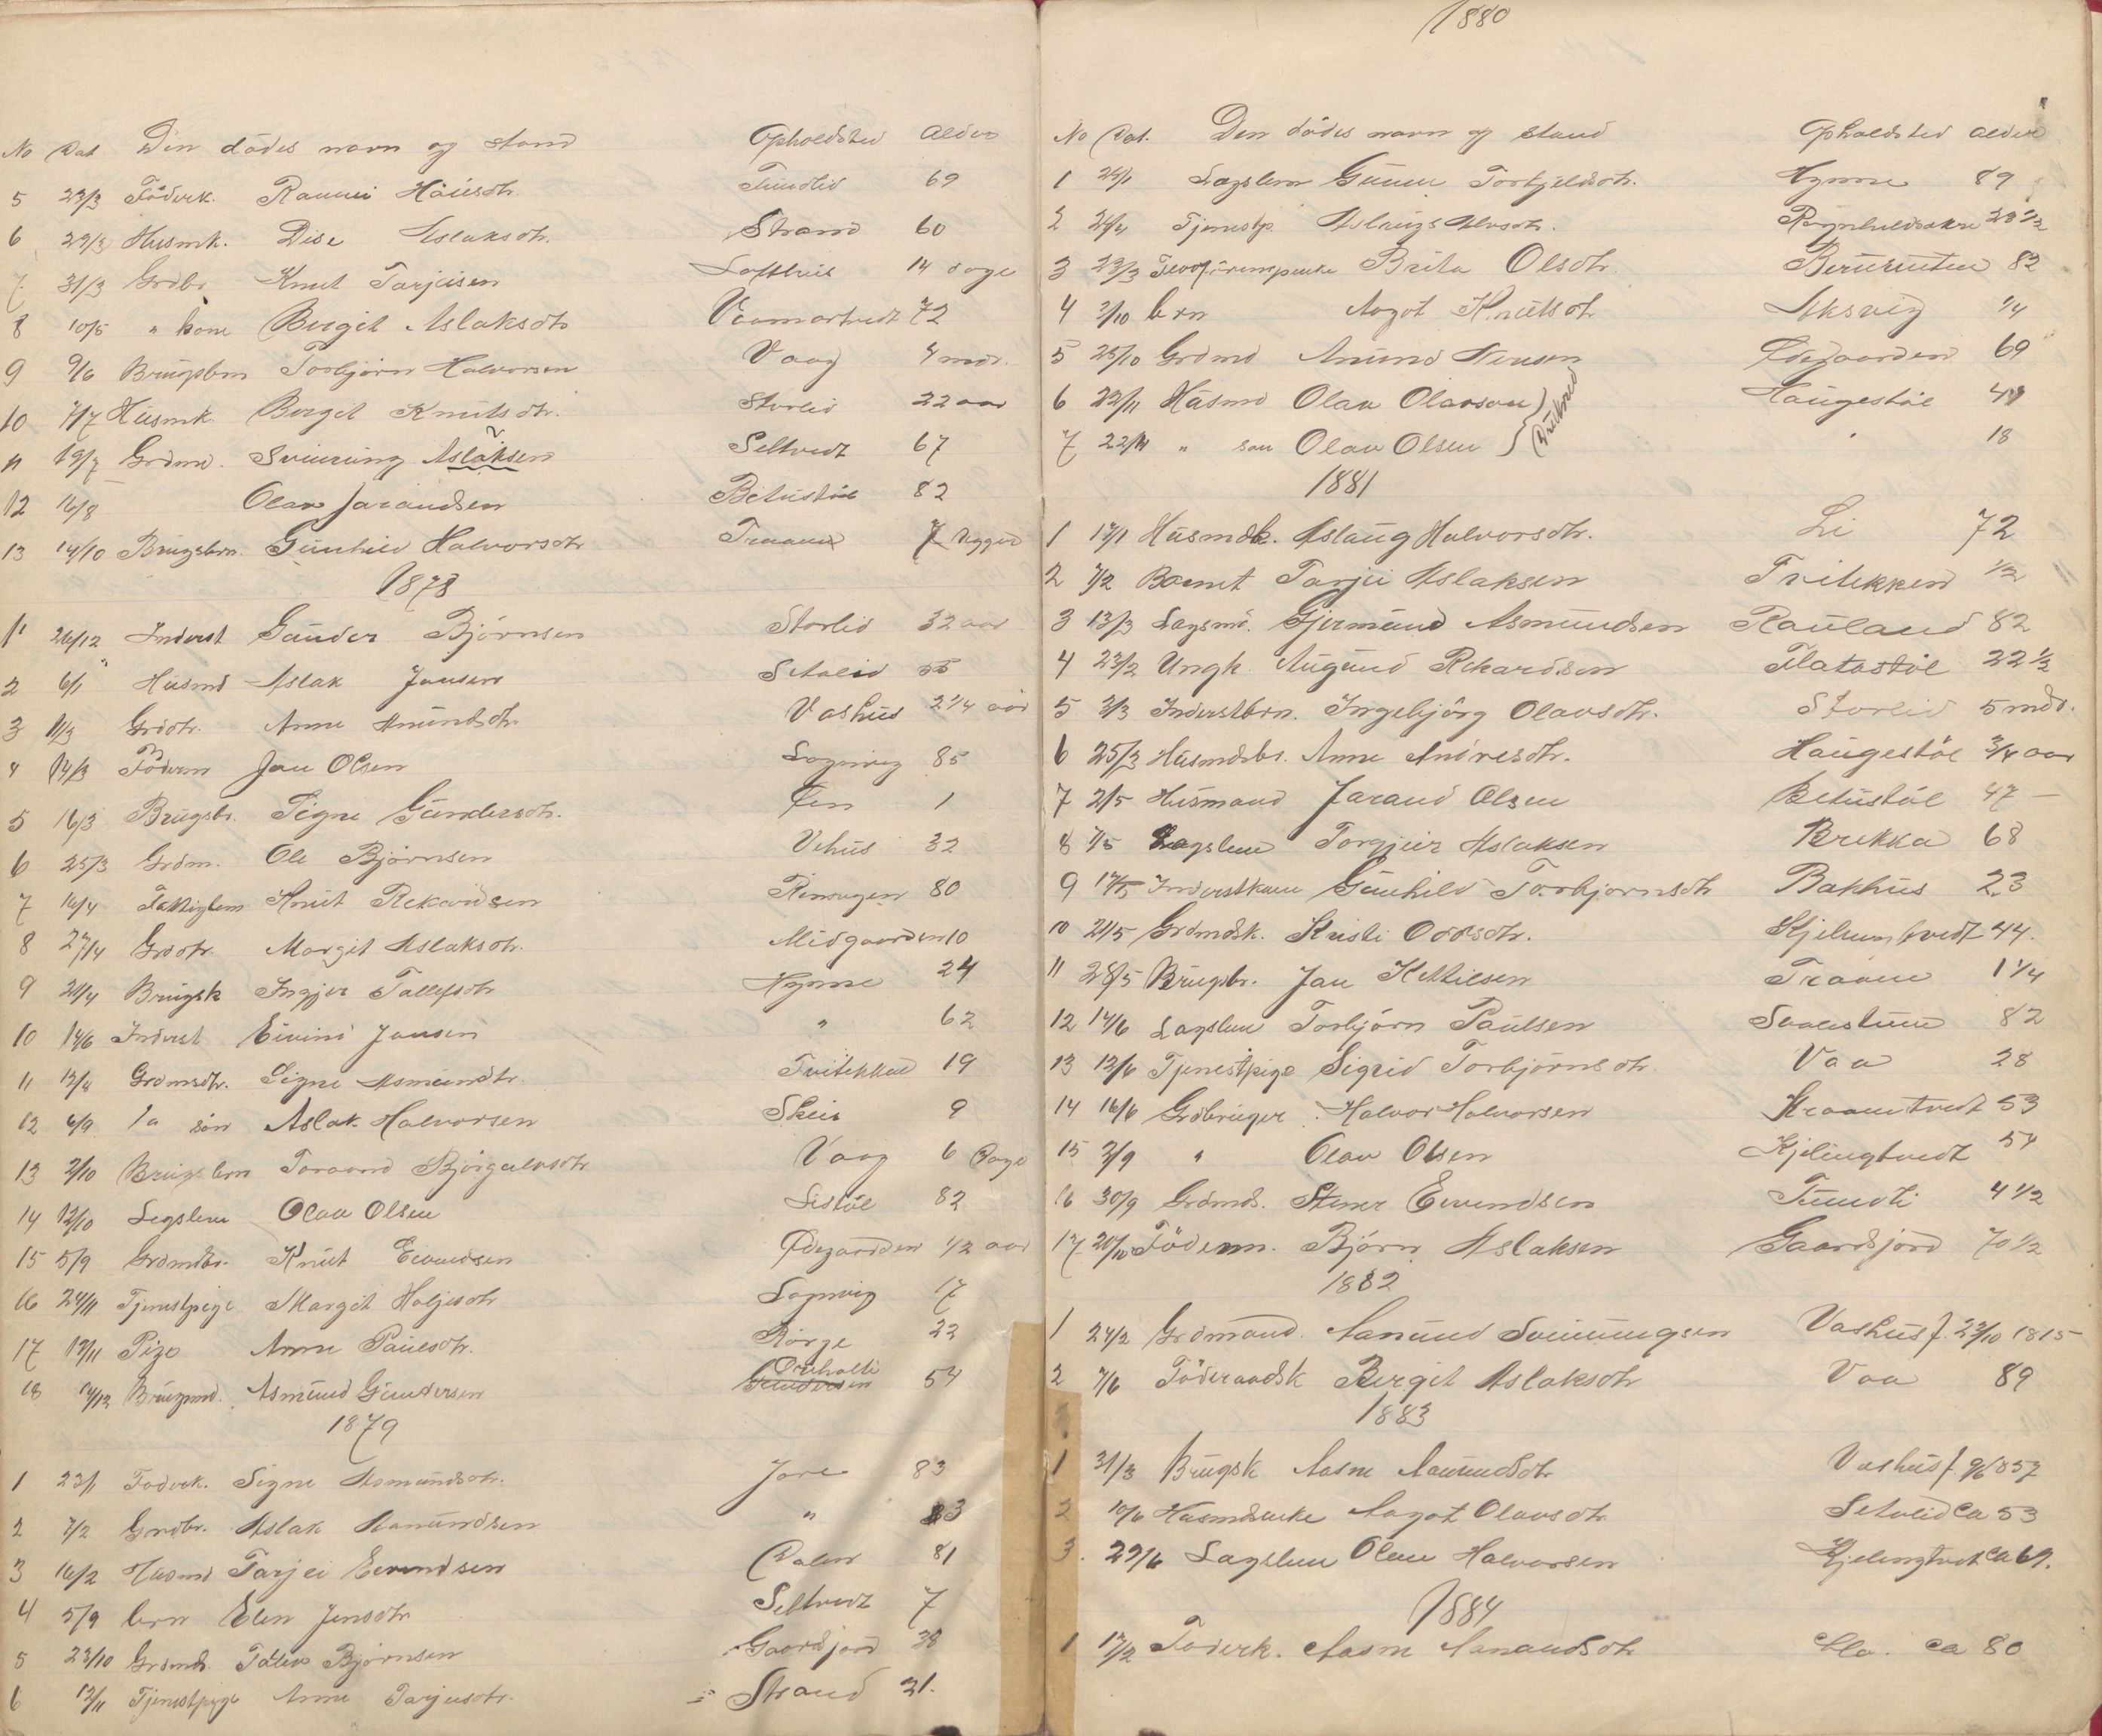 No Dat Den dödes navn og stand Opholdsted Alder
5 23/3 Föderk. Rannei Håinsdtr. Tundlid 69
6 29/3 Husmk. Dise Aslaksdtr. Strand 60
7 31/3 Grdbr. Knut Tarjeisen Lofthus 14 dage
8 10/5 " kone Bergit Aslaksdtr 72
9 9/6 Brugsbrn Torbjörn Halvorsen Vaag 4 mdr.
10 7/7 Husmk. Bergit Knutsdtr. Storlid 22 aar
11 19/7 Grdmd. Sveinung Aslaksen Seltvedt 67
12 16/8 Olav Jarandsen Bitustöl 82
13 14/10 Brugsbrn. Gunhild Halvorsdtr Traaen 7 Uger
1878
1 26/12 Inderst Gunder Björnsen Storlid 32 aar
2 6/1 Husmd Aslak Jansen Setalid 55
3 11/3 Grdtr. Anne Amundsdtr. Vashus 2 1/4 aar
4 14/3 Föderm Jan Olsen Lognvig 85
5 16/3 Brugsbr. Signe Gundersdtr. Fen 1
6 25/3 Grdm. Ole Björnsen Vehus 32
7 16/4 Fattiglem Knut Rekardsen 80
8 27/4 Grdtr. Margit Aslaksdtr. Midgaarden 10
9 21/4 Brugsk Ingjer Tallefsdtr Nymoe 24
10 14/6 Inderst Eivind Jansen " 62
11 12/8 Grdmsdtr. Signe Asmundtr. Tvitekken 19
12 6/9 sön Aslak Halvorsen Skeis 9
13 2/10 Brugsbrn Toraand Björgulvsdtr Vaag 6 Dage
14 12/10 Legslem Olav Olsen Listöl 82
15 5/9 Grdmdbr. Knut Eivindsen Ödegaarden 1/2 aar
16 24/11 Tjenestpige Margit Haljesdtr Lognvig 17
17 12/11 Pige Anne Paulsdtr. Börge 22
18 14/12 Brugsmd. Asmund Gundersen Gundersen 54
1879
1 23/1 Foderk. Signe Asmundsdtr. Jore 83
2 7/2 Grdbr. Aslak Aamundsen " 83
3 16/2 Husmd Tarjei Eivindsen Dalen 81
4 5/9 brn Elen Jensdtr Seltvedt 7
5 23/10 Grdmd. Tallev Björnsen Gaardsjord 38
6 12/11 Tjenestpige Anne Tarjeisdtr. Strand 21.
1880
No Dat. Den dödes navn og stand Opholdsted Alder
1 24/1 Lagslem Gunne Torkjeldsdtr. Nymoe 89
2 24/2 Tjenestp. Aslaug Alvsdtr. 28 1/2
3 23/3 Brita Olsdtr. Berunuten 82
4 2/10 brn Aagot Knutsdtr Aksvig 1/4
5 25/10 Grdmd Amund Hansen Ödegaarden 69
6 22/11 Husmd Olav Olavson } Haugestöl 49
7 22/11 " sön Olav Olsen } Druknede " 18
1881
1 17/1 Husmdk. Aslaug Halvorsdtr. Li 72
2 7/2 Barnet Tarjei Aslaksen Tvitekken 1/2
3 13/3 Lagsmd. Gjermund Asmundsen Rauland 82
4 23/2 Ungk. Augund Rekardsen Flatastöl 22 1/2
5 2/3 Inderstbrn. Ingebjörg Olavsdtr. Storlid 5 mdr.
6 25/3 Husmdsbr. Anne Andresdtr. Haugestöl 3/4 aar
7 2/5 Husmand Jarand Olsen Bitustöl 47 —
8 7/5 Lagslem Torgjeir Aslaksen Brekka 68
9 17/5 Inderstkone Gunhild Torbjornsdtr Bakhus 23
10 21/5 Grdmdsk. Kristi Oddsdtr. Kjelingtvedt 44.
11 28/5 Brugsbr. Jan Kittilsen Traaen 1 1/4
12 14/6 Lagslem Torbjörn Paulsen 82
13 12/6 Tjenestpige Sigrid Torbjörnsdtr. Vaa 28
14 16/6 Grdbruger Halvor Halvorsen Kraamtvedt 53
15 2/9 " Olav Olsen Kjelingtvedt 54
16 30/9 Grdmds. Stener Eivendsen Tundli 4 1/2
17 20/10 Föderm. Björn Aslaksen Gaardsjord 70 1/2
1882
1 24/2 Grdmand. Aanund Sveinungsen Vashus f. 23/10 1815
2 7/6 Föderaadsk Bergit Aslaksdtr Vaa 89
1883
1 31/3 Brugsk Aasne Aanundsdtr Vashus f. 9/6 857
2 10/6 Husmdsenke Aagot Olavsdtr. Setalid ca 53
3. 29/6 Lagslem Olav Halvorsen Kjelingtvedt ca 69.
1884
1 17/2 Föderk. Aasne Aanundsdtr ca 80